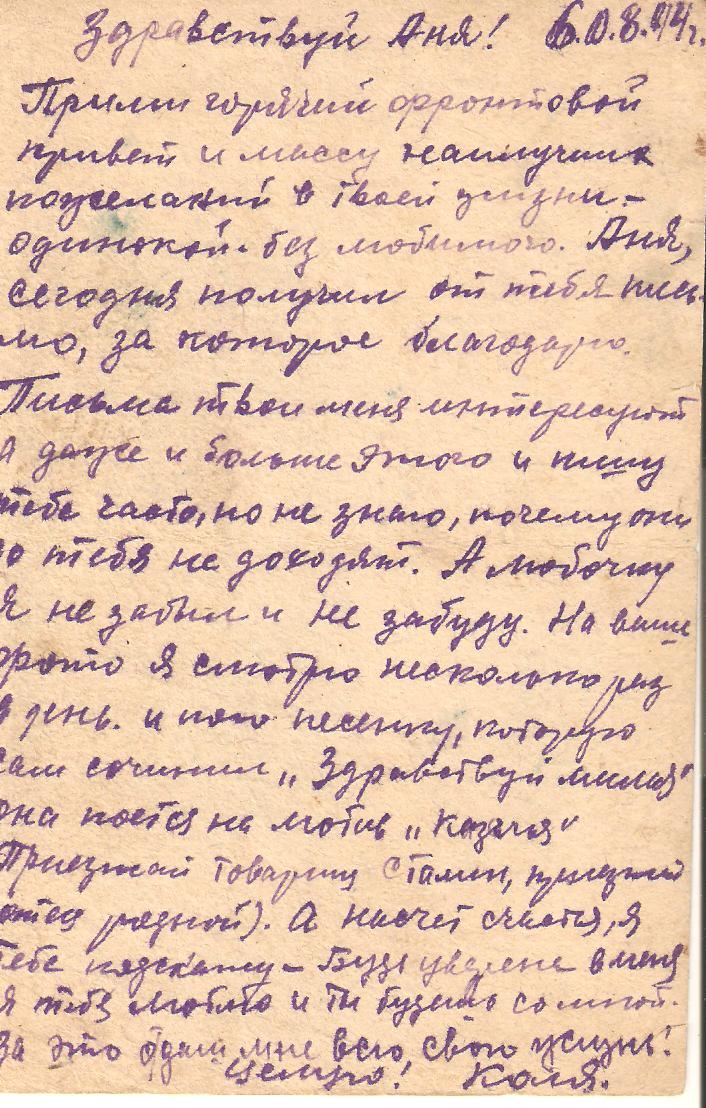 Здравствуй Аня! 6.0.8.44г.
Прими горячий фронтовой
привет и массу наилучших
пожеланий в твоей жизни –
одинокой. без любимого. Аня,
сегодня получил от тебя пись-
мо, за которое благодарю.
Письма твои меня интересуют
а даже и больше этого и пишу
тебе часто, но не знаю, почему они
до тебя не доходят. А Любочку
я не забыл и не забуду. На ваше
фото я смотрю несколько раз
в день. и пою песенку, которую
сам сочинил „Здравствуй милая"
она поется на мотив „Казачья"
Приезжай товарищ Сталин, приезжай
отец родной). А насчет счастья, я
тебе подскажу – Будь уверена в меня
я тебя люблю и ты будешь со мной.
За это отдай мне всю свою жизнь!
Целую! Коля.